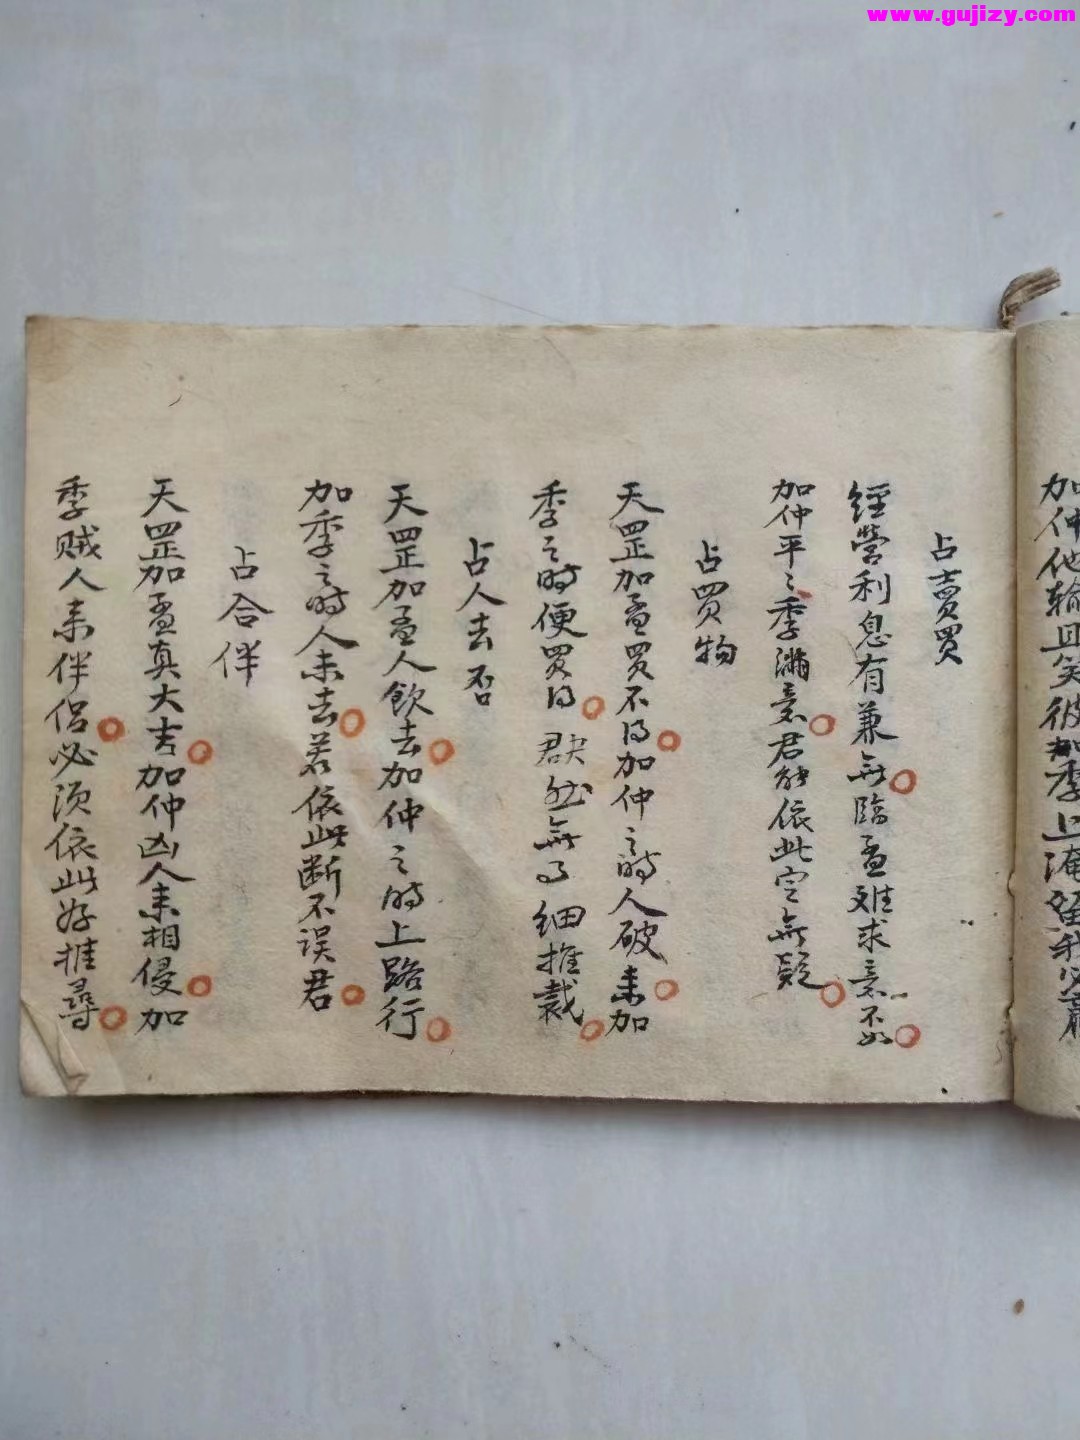 www.gujizy.com
加仲他輸且笑彼加季上淹
占賣買
經營利息有兼無臨孟难求意不如
加仲平〻季滿意君能依此定無疑
占買物
天罡加孟買不得加仲之時人破未加
季之時便買得 缺然無了 细推裁
占人去否
天罡加孟人飲去加仲之時上路行
加季之時人未去若依此断不误君
占合伴
天罡加孟真大吉加仲凶人来相侵加
季贼人来伴侣必须依此好推尋